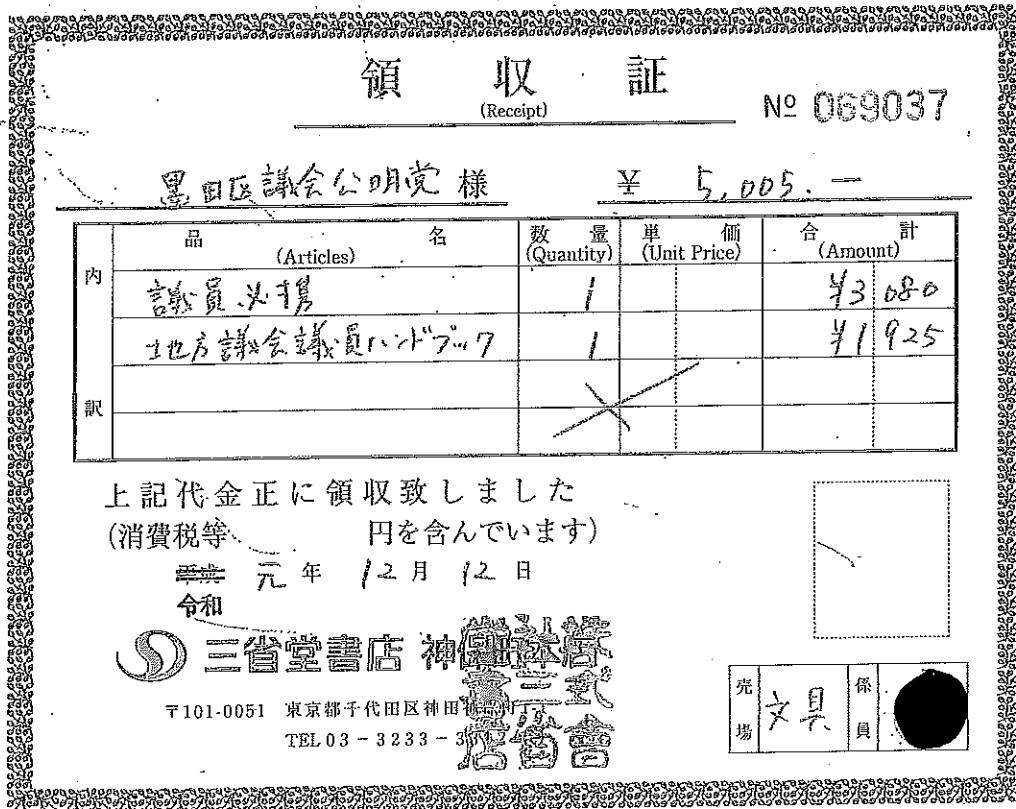 領収証
(Receipt)
№ 069037
墨田区議会公明党 様 ¥ 5,005.—
内訳
品名 数量 単価 合計
(Articles) (Quantity) (Unit Price) (Amount)
議員必携 1 ¥3 080
地方議会議員ハンドブック 1 ¥1 925
上記代金正に領収致しました
(消費税等 円を含んでいます)
平成 元年 12月 12日
令和
三省堂書店 神保町本店
〒101-0051 東京都千代田区神田
TEL 03-3233-3312
売場 文具 係員